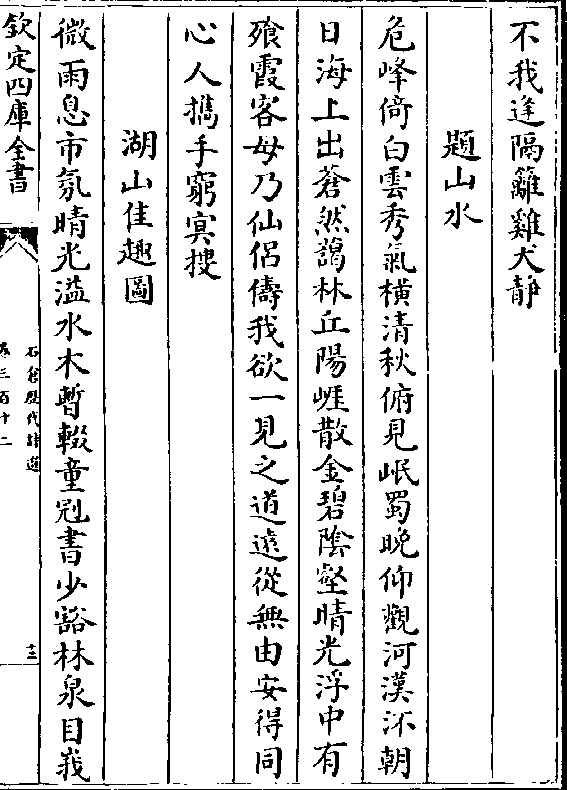 不我逢隔籬雞犬靜
題山水
危峰倚白雲秀氣橫清秋俯見岷蜀晚仰觀河漢流朝
日海上出蒼然藹林丘陽崕散金碧陰壑晴光浮中有
飱霞客毋乃仙侶儔我欲一見之道逺從無由安得同
心人攜手窮冥搜
湖山佳趣圖
微雨息市氛晴光溢水木暫輟童冠書少豁林泉目峩
欽定四庫全書
石倉歷代詩選
卷三百十二
十三